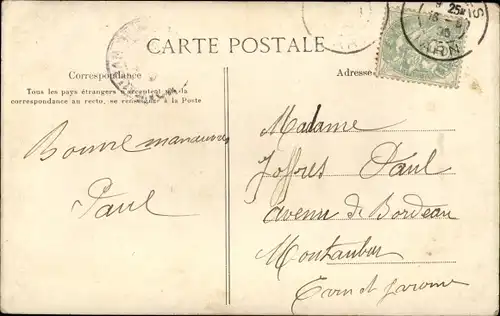 CARTE POSTALE
Correspondance
Tous les pays étrangers n'acceptent pas la
correspondance au recto, se renseigner à la Poste
Adresse
Bonne manœuvre
Paul
Madame
Joffres Paul
avenu de Bordeau
Montauban
Tarn et Garonne